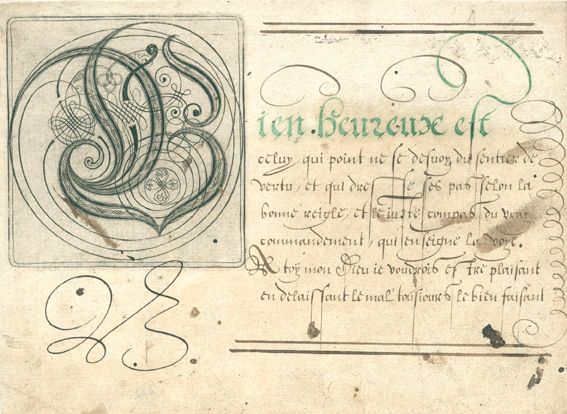 B
ien heureux est
celuy qui point ne se desuoy du sentier de
vertu, et qui dresse ses pas selon la
bonne reigle, et le iuste compas, du vray
commandement, qui enseigne la voye.
A toy mon Dieu ie voudrois estre plaisant
en delaissant le mal tousiours le bien faisant
B